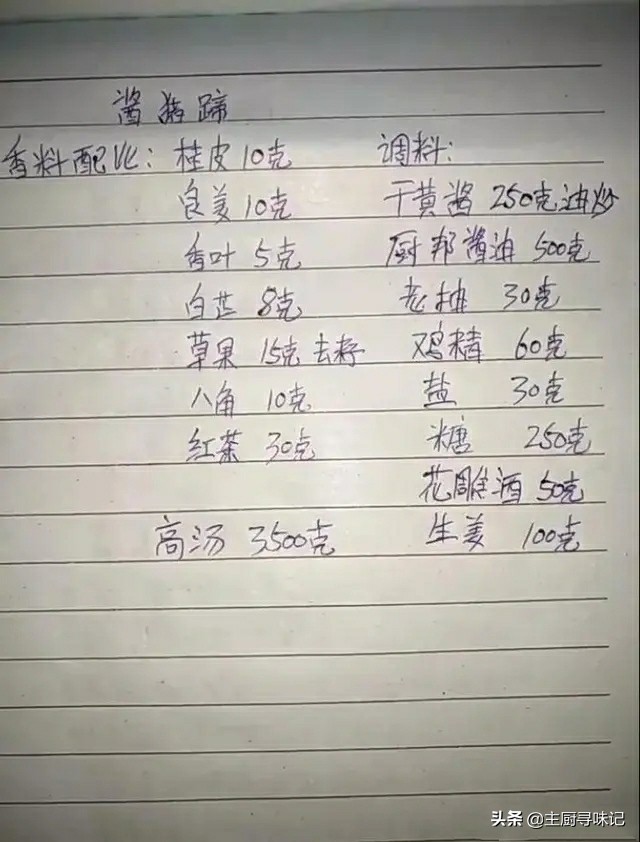 酱猪蹄
香料配比：桂皮10克 调料：
良姜10克 干黄酱 250克油炒
香叶 5克 厨邦酱油 500克
白芷 8克 老抽 30克
草果 15克去籽 鸡精 60克
八角 10克 盐 30克
红茶 30克 糖 250克
花雕酒 50克
高汤 3500克 生姜 100克
头条 @主厨寻味记